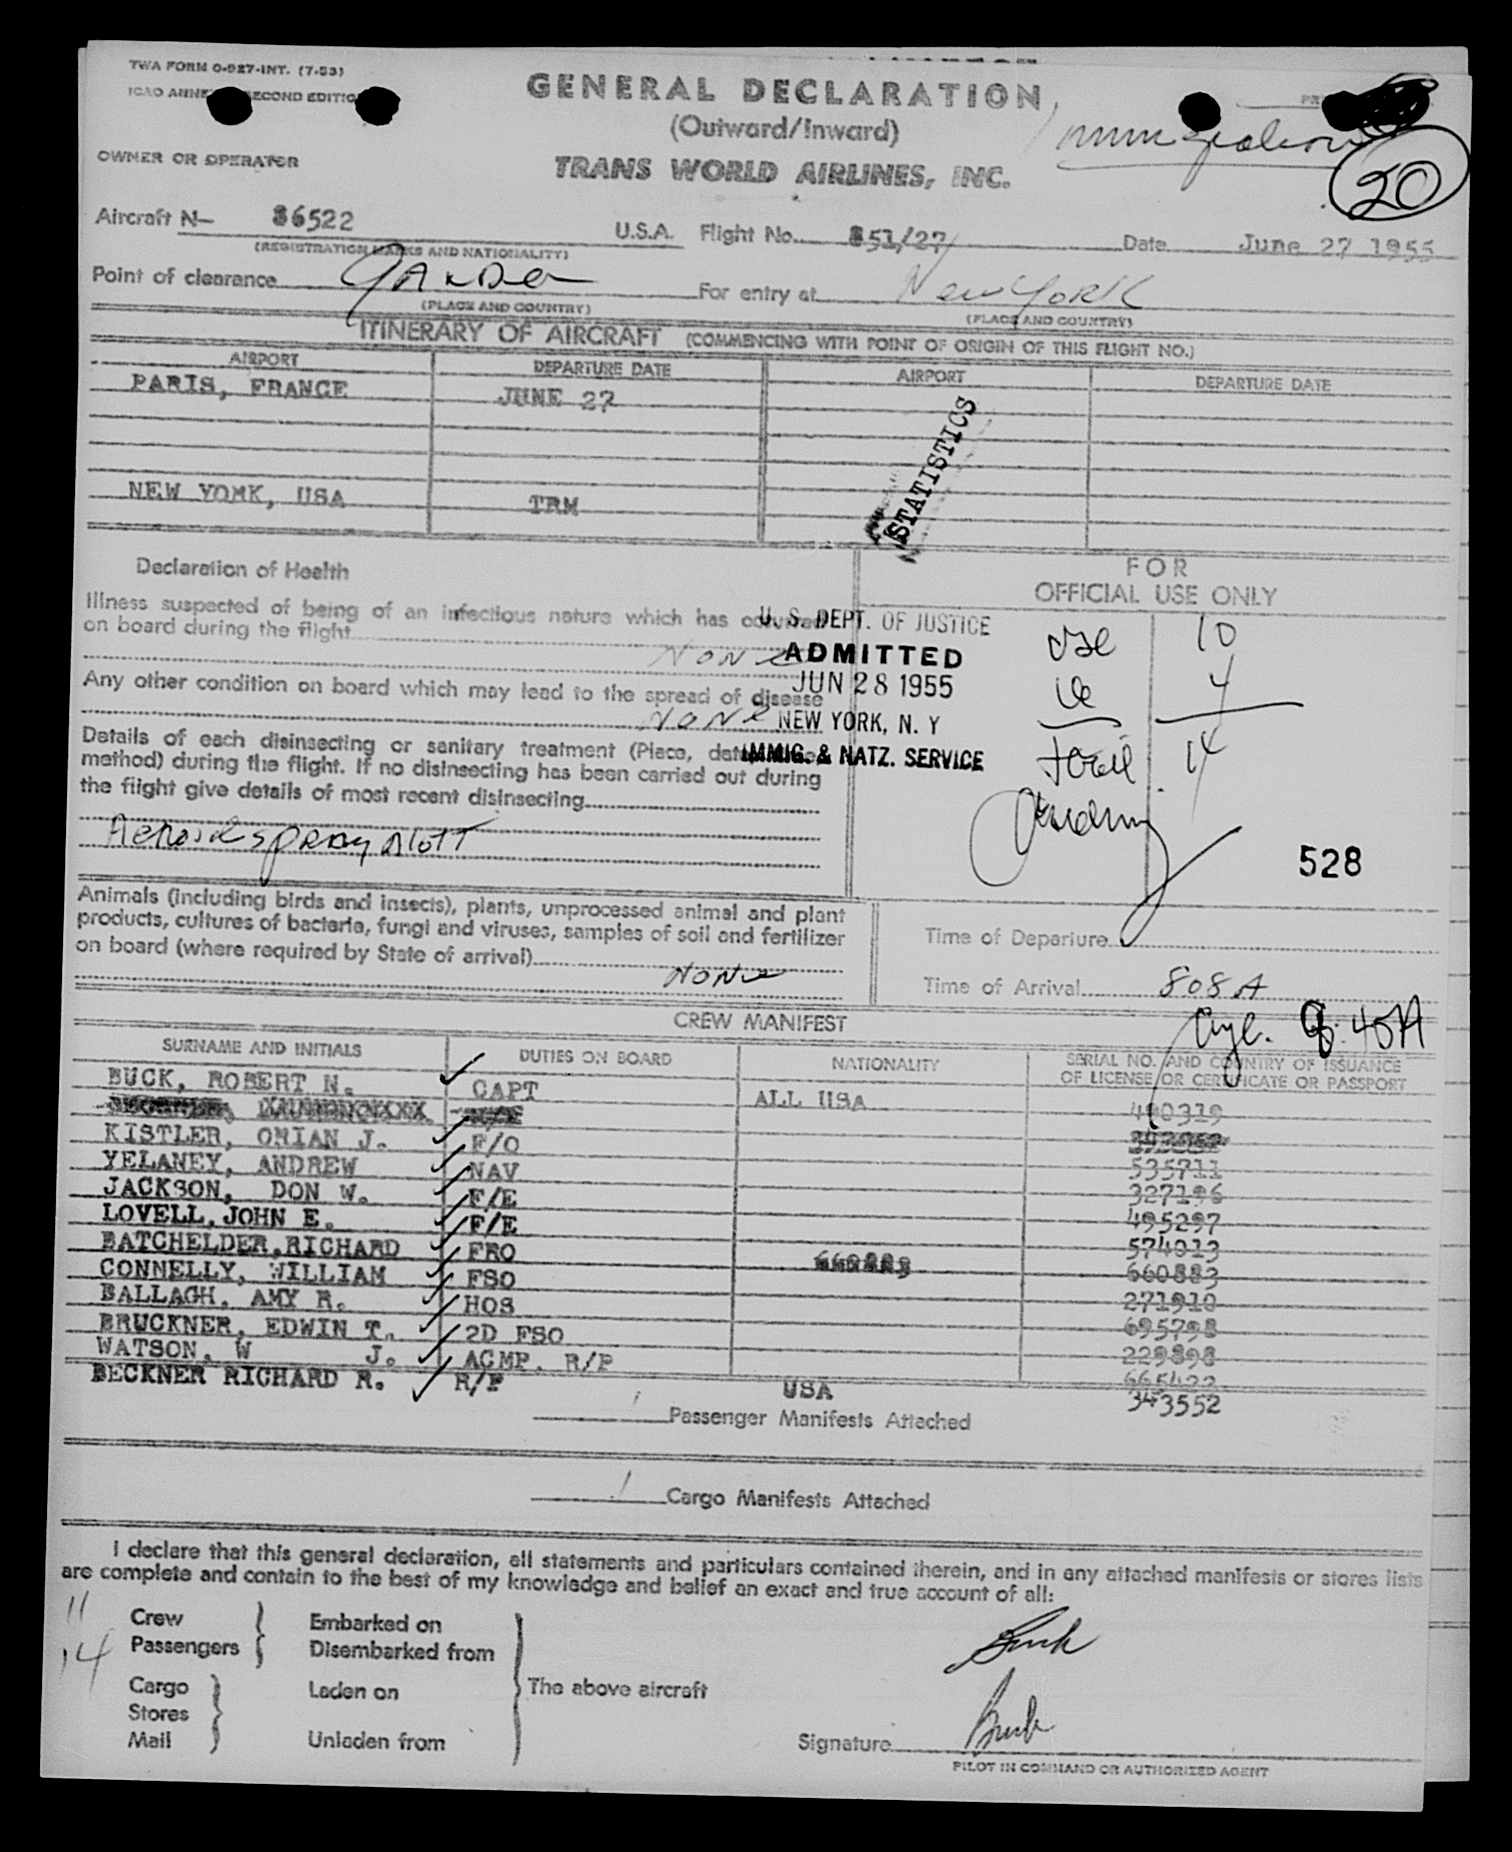 TWA FORM O-927-INT. (7-53)
ICAO ECOND EDITIO
GENERAL DECLARATION
(Outward/Inward)
Immigration
20
OWNER OR OPERATOR
TRANS WORLD AIRLINES, INC.
Aircraft N— 86522 U.S.A. Flight No. 851/27 Date June 27 1955
(REGISTRATION MARKS AND NATIONALITY)
Point of clearance Gander For entry at New York
(PLACE AND COUNTRY) (PLACE AND COUNTRY)
ITINERARY OF AIRCRAFT (COMMENCING WITH POINT OF ORIGIN OF THIS FLIGHT NO.)
AIRPORT DEPARTURE DATE AIRPORT DEPARTURE DATE
PARIS, FRANCE JUNE 27
STATISTICS
NEW YORK, USA TRM
Declaration of Health
FOR
OFFICIAL USE ONLY
Illness suspected of being of an infectious nature which has
on board during the flight
None
U. S. DEPT. OF JUSTICE
ADMITTED
JUN 28 1955
NEW YORK, N. Y
IMMIG. & NATZ. SERVICE
10
4
14
Any other condition on board which may lead to the spread of disease
None
Details of each disinsecting or sanitary treatment (Place,
method) during the flight. If no disinsecting has been carried out during
the flight give details of most recent disinsecting
Aerosol spray
528
Animals (including birds and insects), plants, unprocessed animal and plant
products, cultures of bacteria, fungi and viruses, samples of soil and fertilizer
on board (where required by State of arrival)
None
Time of Departure
Time of Arrival 808A
45A
CREW MANIFEST
SURNAME AND INITIALS DUTIES ON BOARD NATIONALITY SERIAL NO. AND COUNTRY OF ISSUANCE
OF LICENSE OR CERTIFICATE OR PASSPORT
BUCK, ROBERT N. CAPT ALL USA 400319
KISTLER, ORIAN J. F/O 535711
YELANEY, ANDREW NAV 327196
JACKSON, DON W. F/E 495297
LOVELL, JOHN E. F/E 574013
BATCHELDER, RICHARD FRO 660883
CONNELLY, WILLIAM FSO 271910
BALLAGH, AMY R. HOS 695798
BRUCKNER, EDWIN T. 2D FSO 229898
WATSON, W J. ACMP. R/P 665422
BECKNER RICHARD R. R/P USA 343552
1 Passenger Manifests Attached
1 Cargo Manifests Attached
I declare that this general declaration, all statements and particulars contained therein, and in any attached manifests or stores lists
are complete and contain to the best of my knowledge and belief an exact and true account of all:
11 Crew Embarked on
14 Passengers Disembarked from
Cargo Laden on The above aircraft
Stores
Mail Unladen from
Buck
Signature Buck
PILOT IN COMMAND OR AUTHORIZED AGENT